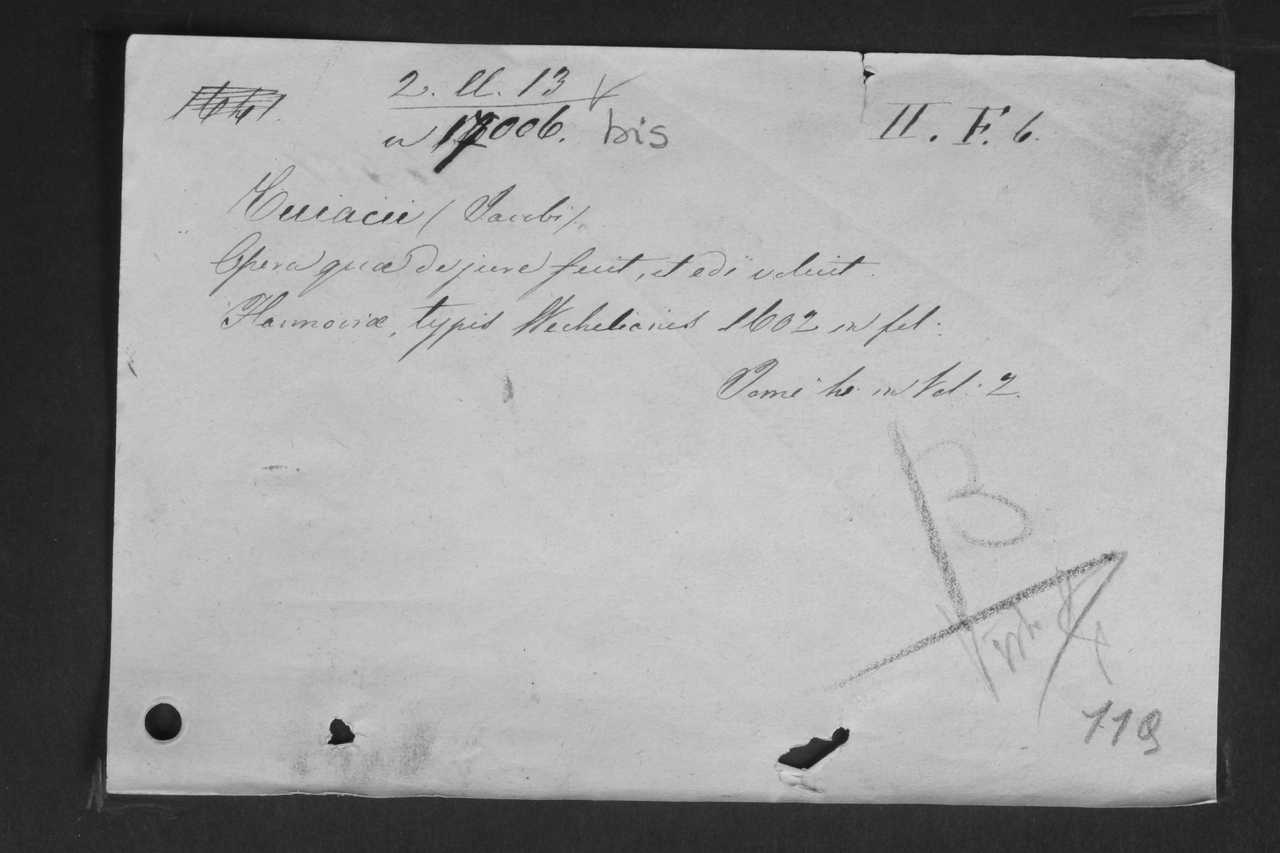 2. ll. 13
II. F. 6.
006. bis
Cuiacii (Jacobi).
Opera quæ de jure fecit, et edi voluit.
Hannoviæ, typis Wechelianis 1602 in fol.
Tomi in Vol. 2.
B
119